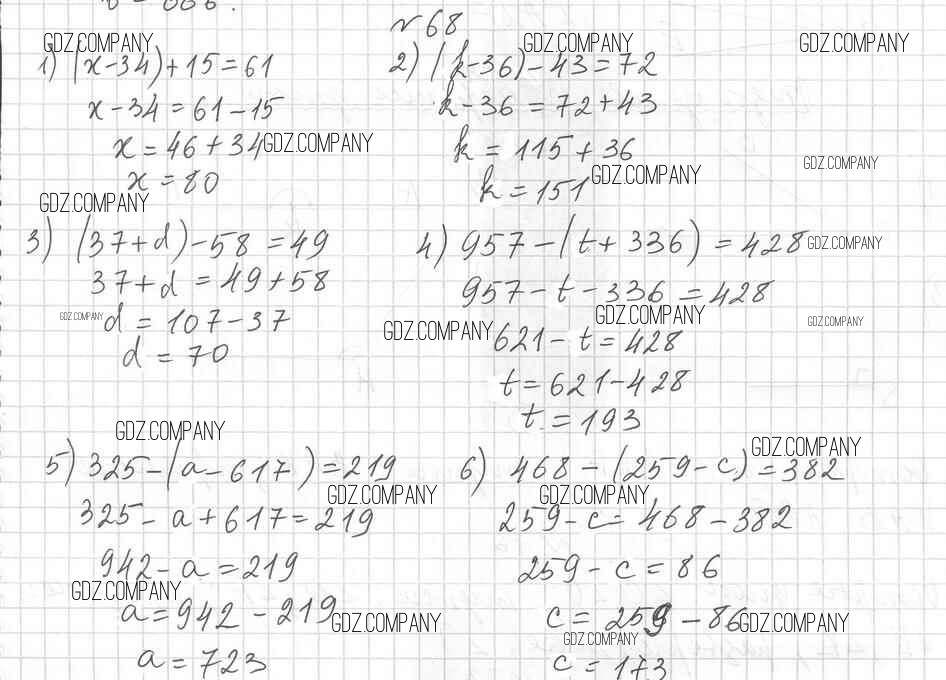 № 68
GDZ.COMPANY GDZ.COMPANY GDZ.COMPANY
1) (x-34)+15=61
x-34=61-15
x=46+34 GDZ.COMPANY
x=80
GDZ.COMPANY
2) (k-36)-43=72
k-36=72+43
k=115+36
GDZ.COMPANY
k=151 GDZ.COMPANY
3) (37+d)-58=49
37+d=49+58
GDZ.COMPANY d=107-37
d=70
4) 957-(t+336)=428 GDZ.COMPANY
957-t-336=428
GDZ.COMPANY GDZ.COMPANY
GDZ.COMPANY 621-t=428
t=621-428
t=193
GDZ.COMPANY
5) 325-(a-617)=219
GDZ.COMPANY
325-a+617=219
942-a=219
GDZ.COMPANY
a=942-219 GDZ.COMPANY
a=723
GDZ.COMPANY
6) 468-(259-c)=382
GDZ.COMPANY
259-c=468-382
259-c=86
c=259-86 GDZ.COMPANY
GDZ.COMPANY
c=173